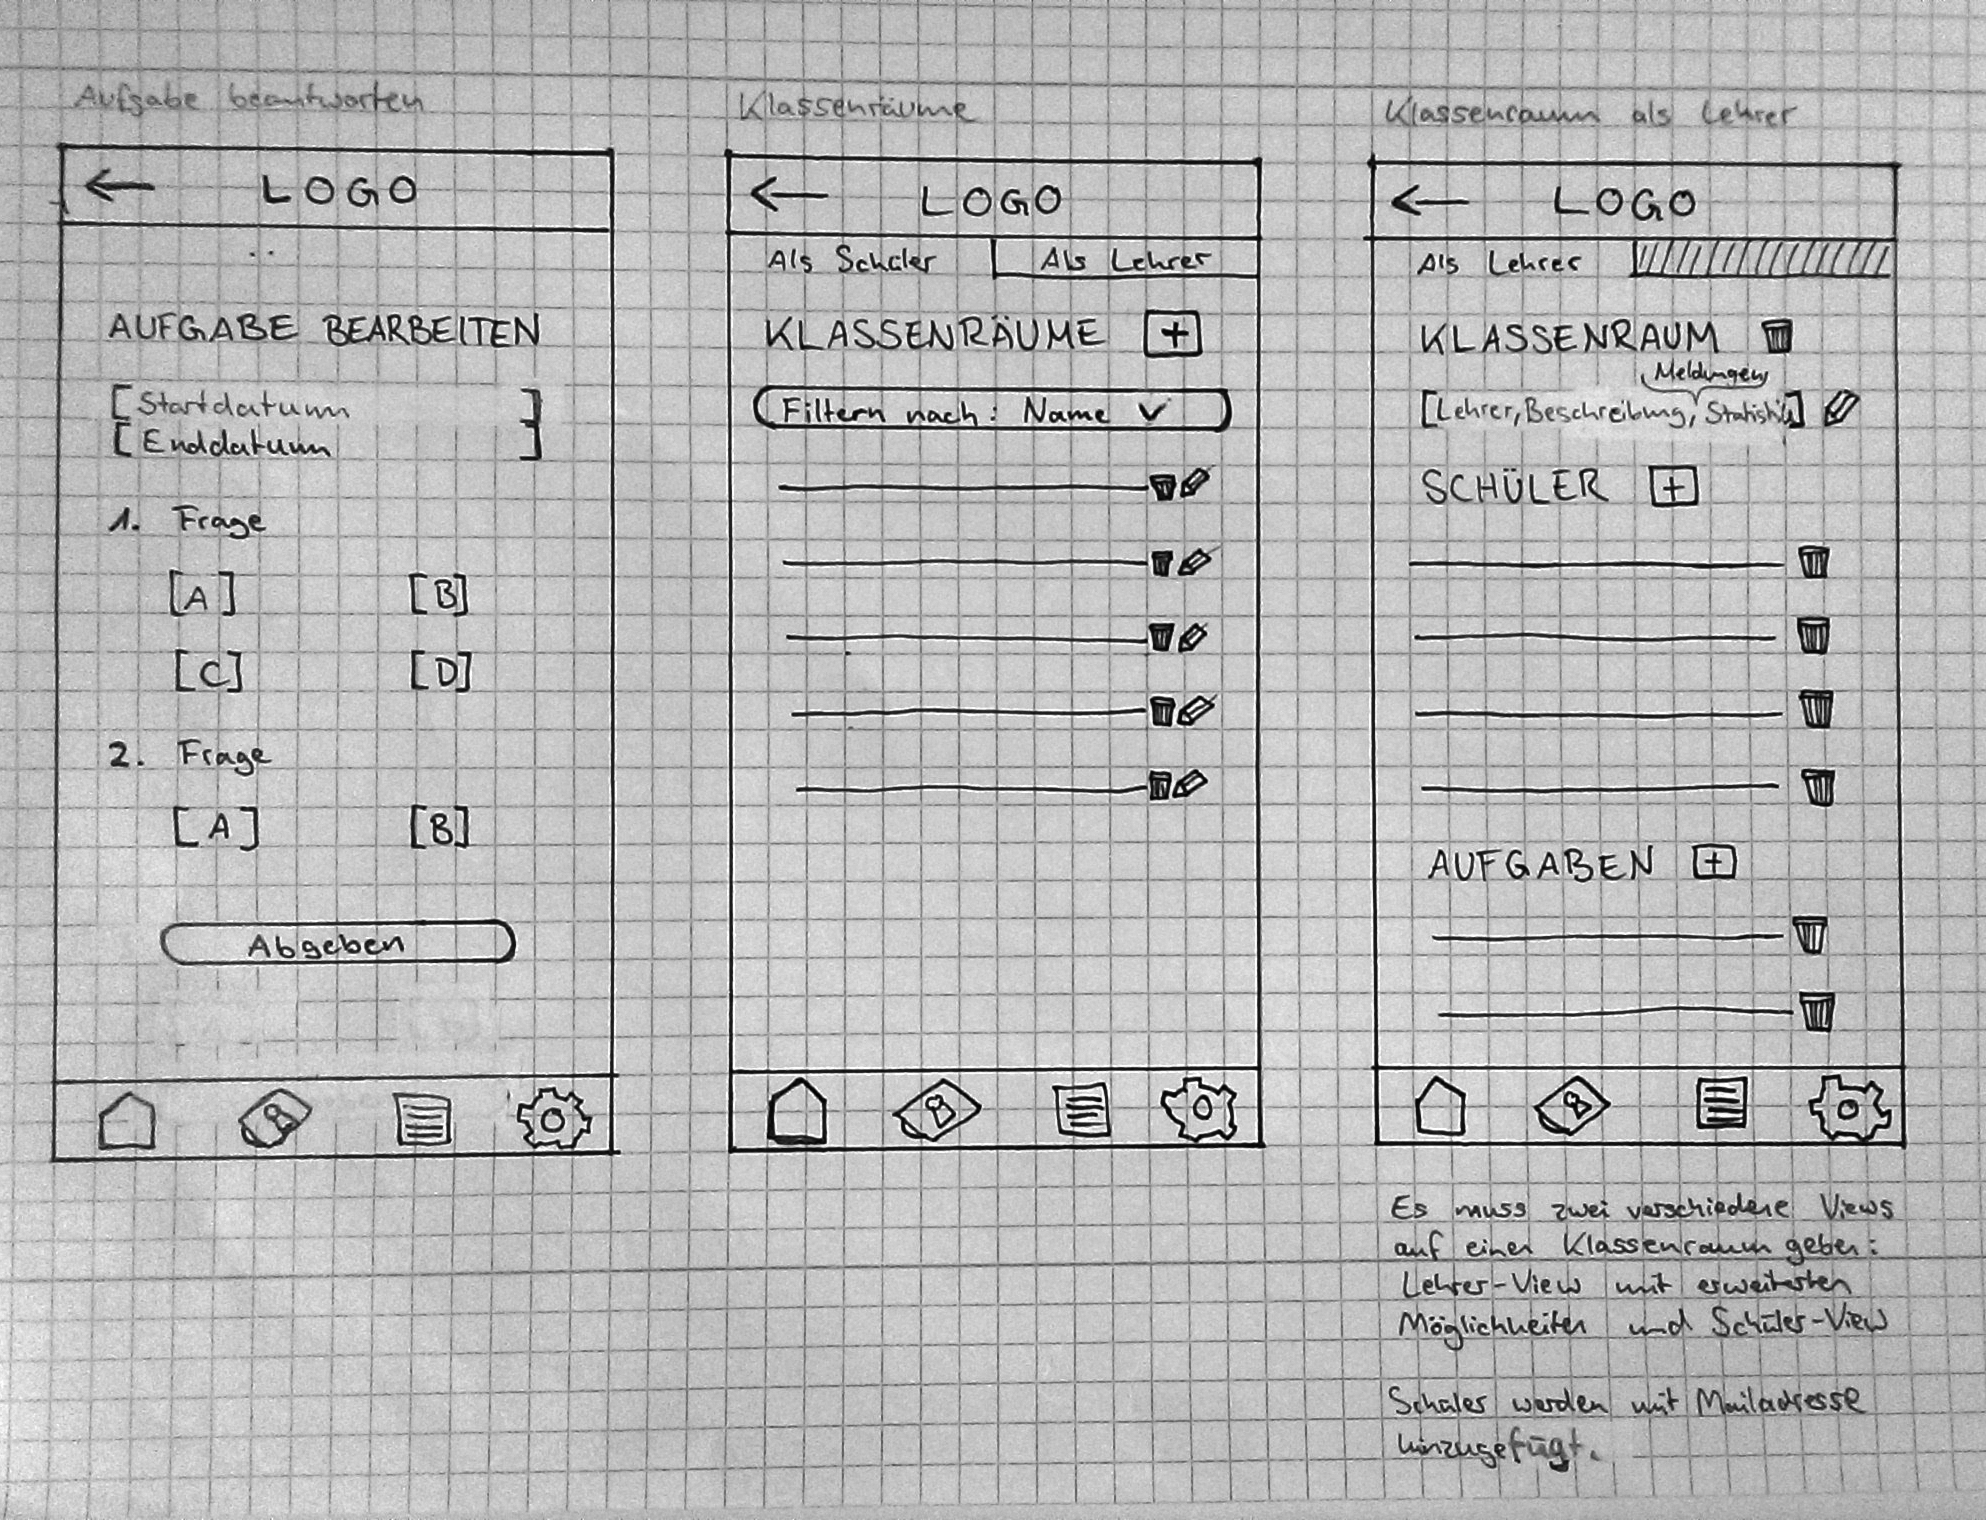 Aufgabe beantworten
← LOGO
AUFGABE BEARBEITEN
[Startdatum ]
[Enddatum ]
1. Frage
[A] [B]
[C] [D]
2. Frage
[A] [B]
Abgeben
Klassenräume
← LOGO
Als Schüler Als Lehrer
KLASSENRÄUME +
Filtern nach: Name ∨
Klassenraum als Lehrer
← LOGO
Als Lehrer
KLASSENRAUM
Meldungen
[Lehrer, Beschreibung, Statistik]
SCHÜLER +
AUFGABEN +
Es muss zwei verschiedene Views
auf einen Klassenraum geben:
Lehrer-View mit erweiterten
Möglichkeiten und Schüler-View
Schüler werden mit Mailadresse
hinzugefügt.